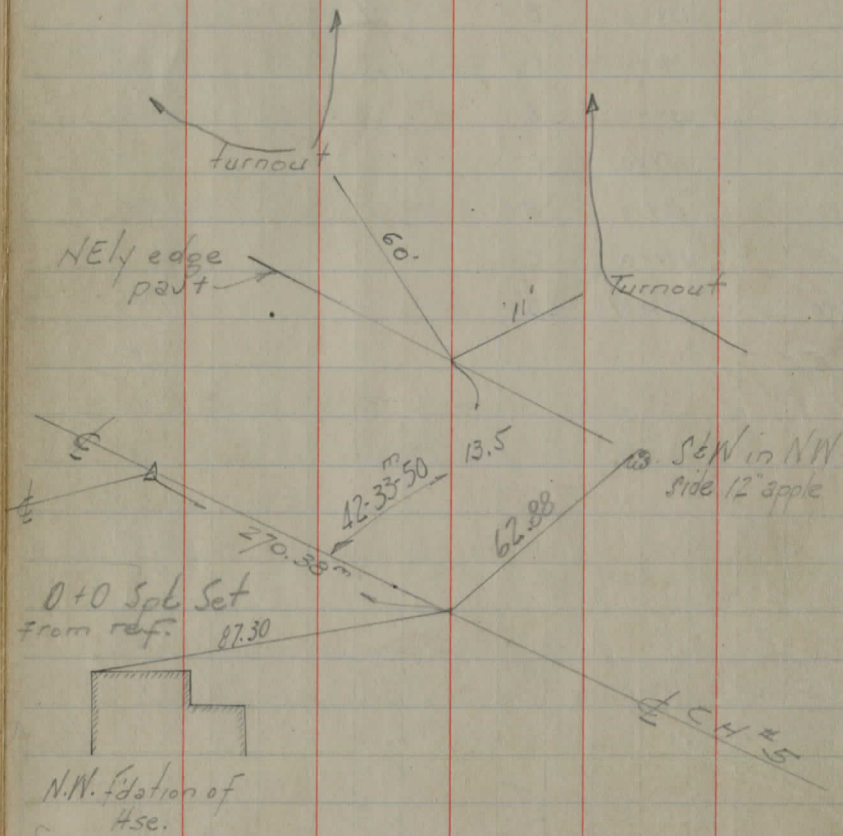 turnout
60.
NEly edge
pav't
11'
Turnout
13.5
S&W in NW
side 12" apple
42-33-50 m
62.88
270.38 m
0+0 Spk Set
from ref.
87.30
℄
℄
℄ C H # 5
N.W. f'dation of
Hse.